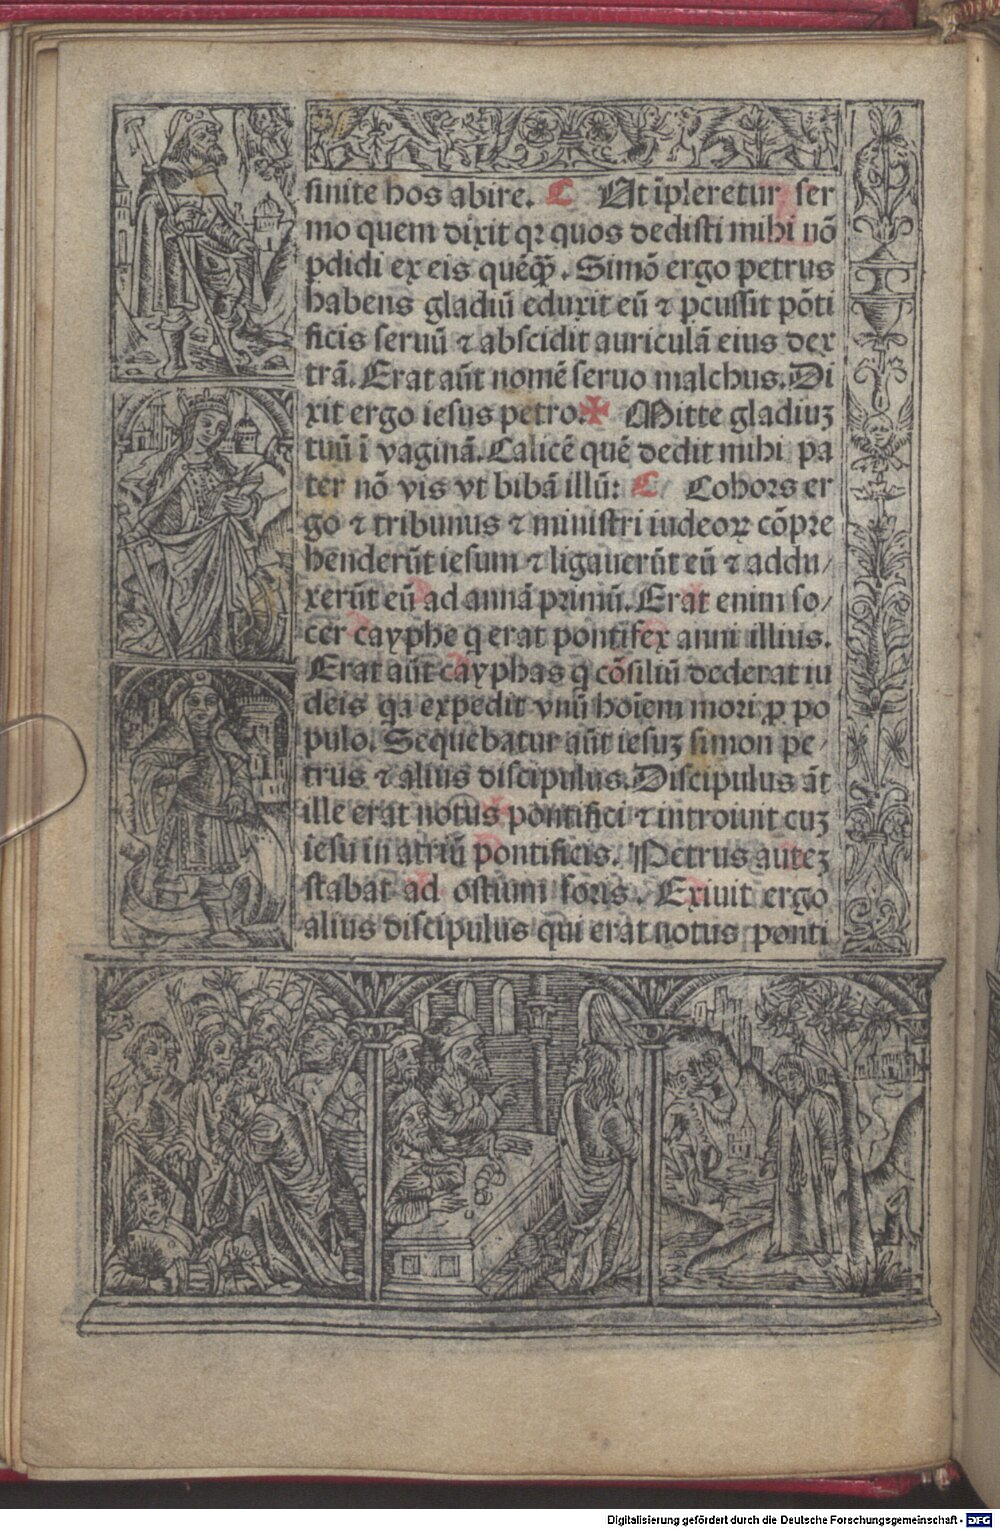 sinite hos abire. C Ut īpleretur ser
mo quem dixit qꝛ quos dedisti mihi nō
ꝑdidi ex eis quēqꝫ̄. Simō ergo petrus
habens gladiū eduxit eū ⁊ ꝑcussit pōti
ficis seruū ⁊ abscidit auriculā eius dex
trā. Erat aūt nomē seruo malchus. Di
xit ergo iesus petro. ✠ Mitte gladiuꝫ
tuū ī vaginā. Calicē quē dedit mihi pa
ter nō vis vt bibā illū: C Cohors er
go ⁊ tribunus ⁊ ministri iudeoꝝ cōpre
henderūt iesum ⁊ ligauerūt eū ⁊ addu/
xerūt eū ad annā primū. Erat enim so/
cer cayphe q erat pontifex anni illius.
Erat aūt cayphas q cōsiliū dederat iu
deis qa expedit vnū hoīem mori ꝓ po
pulo. Sequebatur aūt iesuꝫ simon pe/
trus ⁊ alius discipulus. Discipulus āt
ille erat notus pontifici ⁊ introiuit cuꝫ
iesu in atriū pontificis. Petrus auteꝫ
stabat ad ostium foris. Exiuit ergo
alius discipulus qui erat notus ponti
Digitalisierung gefördert durch die Deutsche Forschungsgemeinschaft - DFG